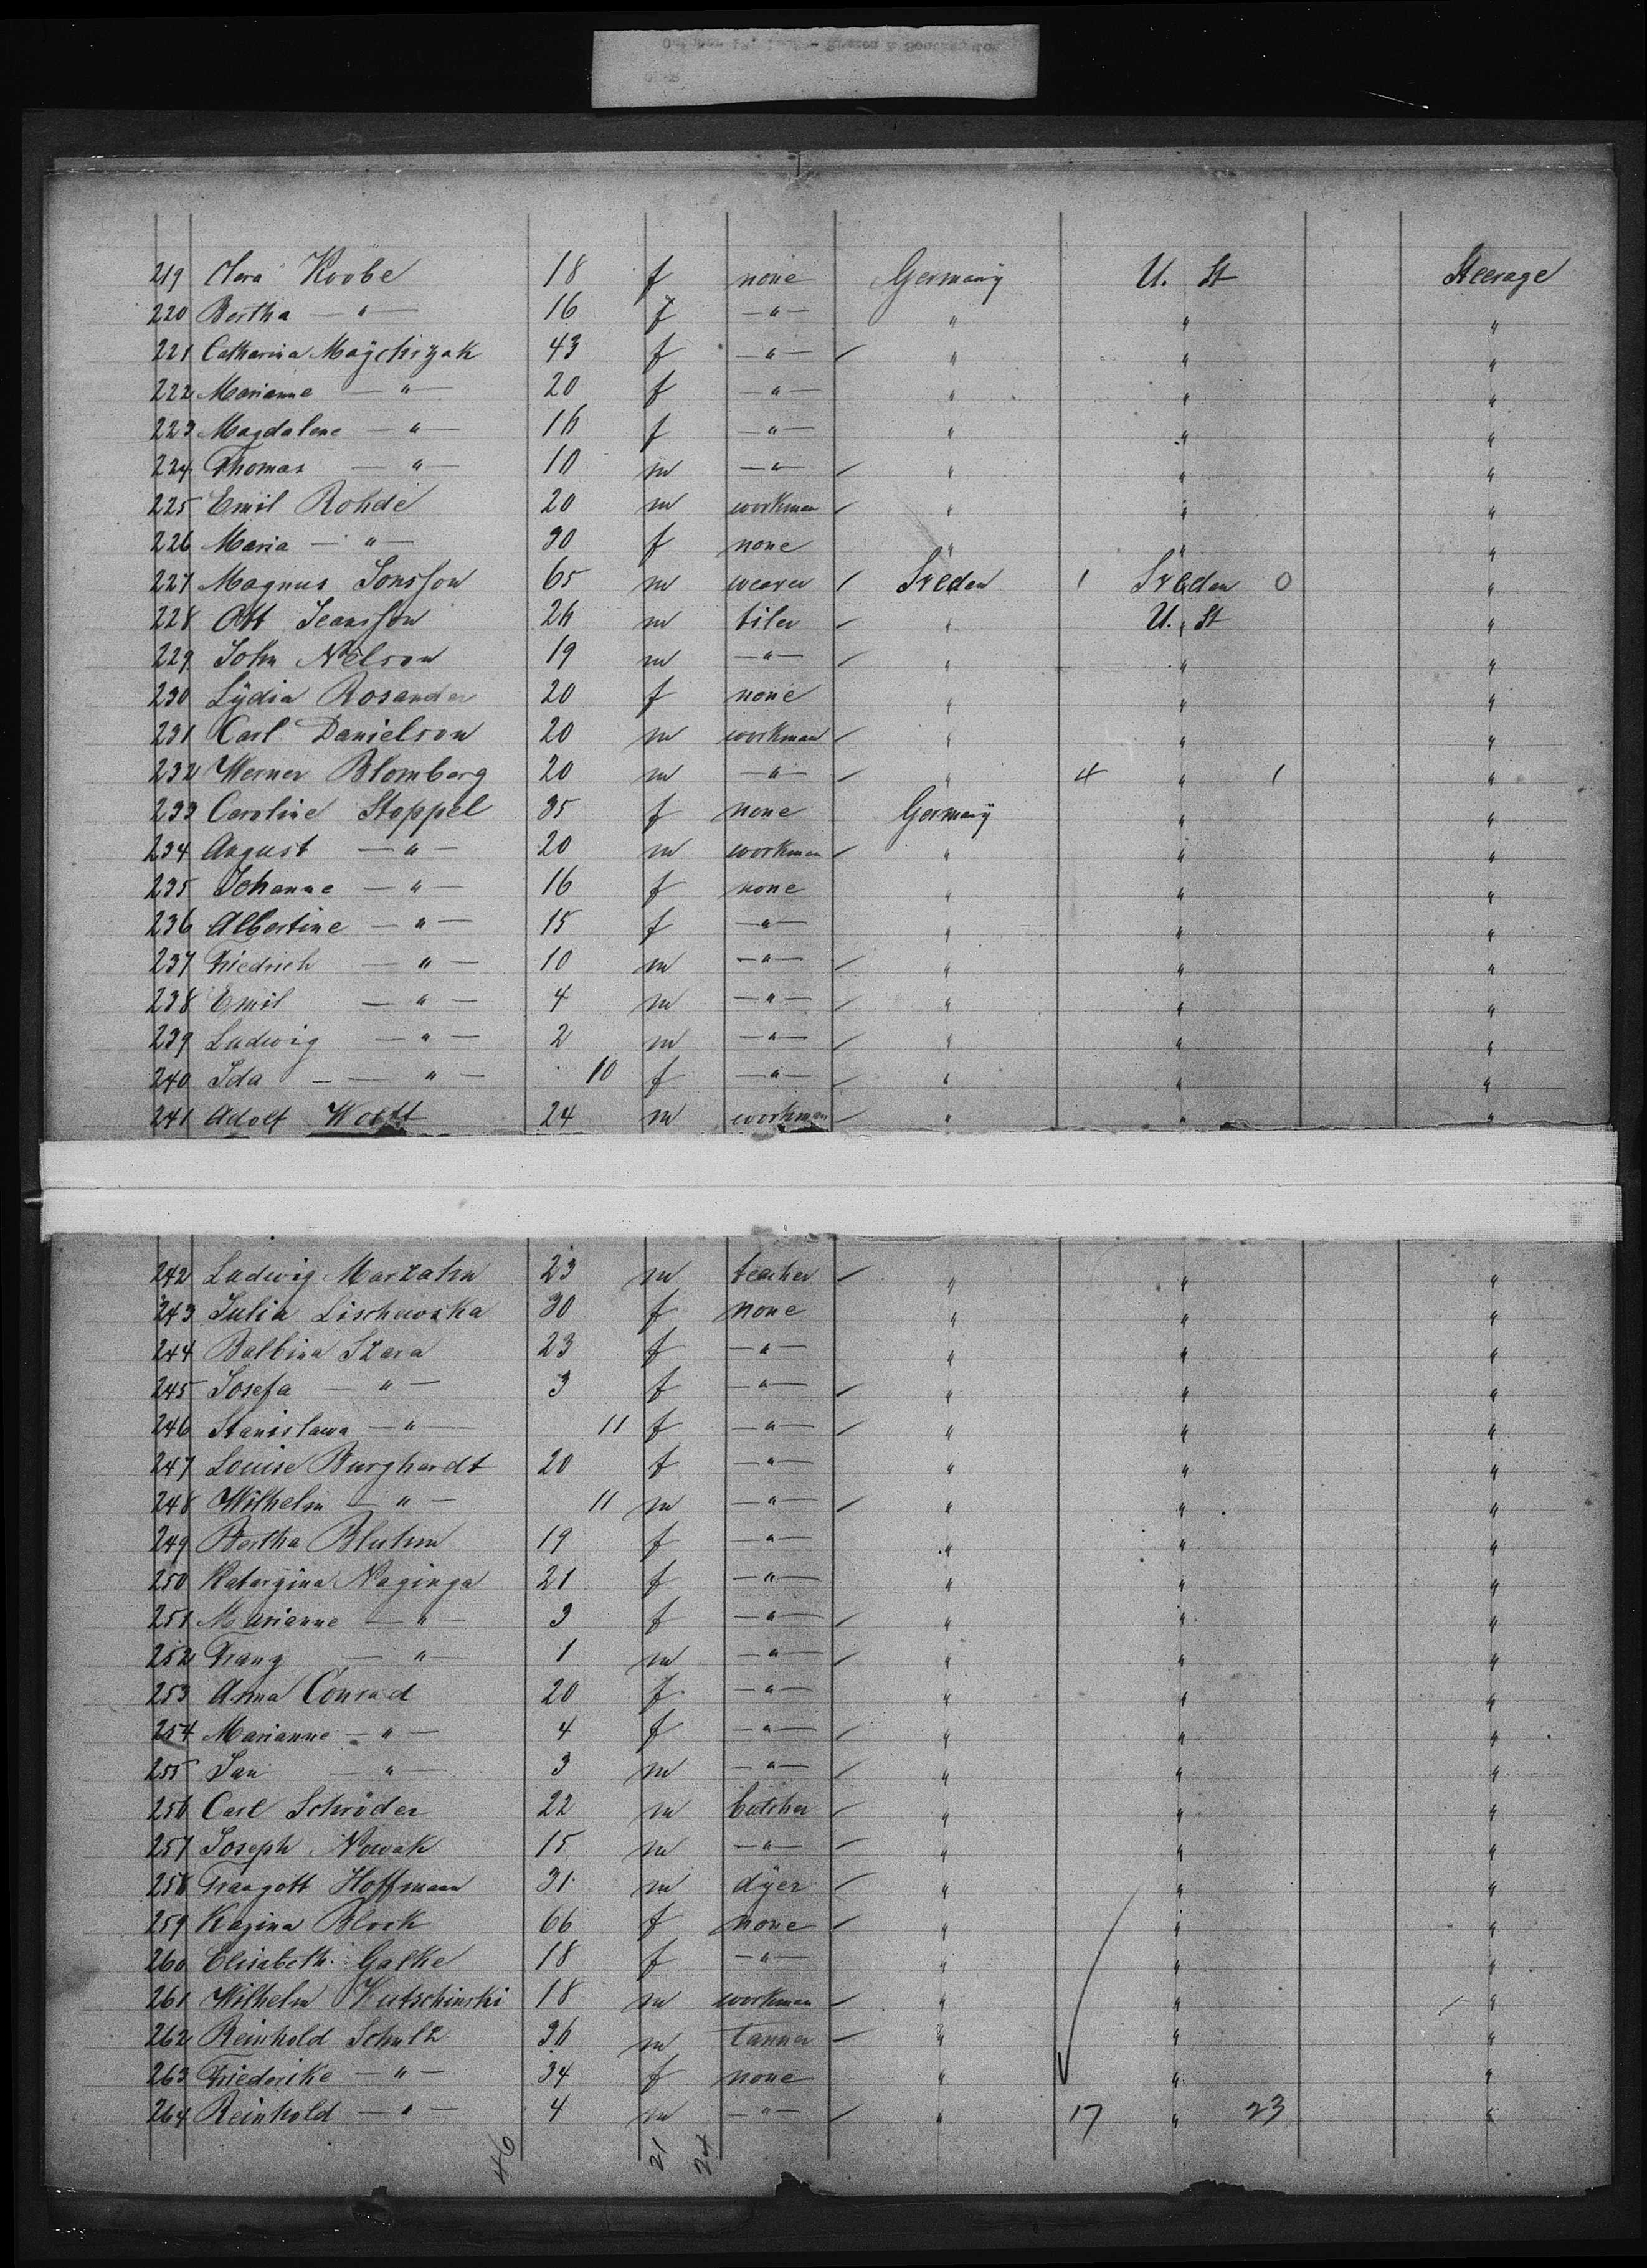 219 Clara Koobe 18 f none Germany U. St Steerage
220 Bertha — " — 16 f — " — " " "
221 Catharina Maÿchrzak 43 f — " — / " " "
222 Marianne — " — 20 f — " — " " "
223 Magdalene — " — 16 f — " — " " "
224 Thomas — " — 10 m — " — / " " "
225 Emil Rohde 20 m workman / " " "
226 Maria — " — 30 f none " " "
227 Magnus Jonsson 65 m weaver / Sveden 1 Sveden 0 "
228 Ott Jeansson 26 m tiler / " U. St "
229 John Nelson 19 m — " — / " " "
230 Lÿdia Rosander 20 f none " " "
231 Carl Danielson 20 m workman / " " "
232 Werner Blomberg 20 m — " — / " 4 " 1 "
233 Caroline Stoppel 35 f none Germanÿ " "
234 August — " — 20 m workman / " " "
235 Johanne — " — 16 f none " " "
236 Albertine — " — 15 f — " — " " "
237 Friedrich — " — 10 m — " — / " " "
238 Emil — " — 4 m — " — / " " "
239 Ludwig — " — 2 m — " — / " " "
240 Ida — " — 10 f — " — / " " "
241 Adolf 24 m workman / " " "
242 Ludwig Marzahn 23 m teacher / " " "
243 Julia Lischewska 30 f none " " "
244 Balbina Szara 23 f — " — " " "
245 Josefa — " — 3 f — " — / " " "
246 Stanislawa — " — 11 f — " — / " " "
247 Louise Burghardt 20 f — " — " " "
248 Wilhelm — " — 11 m — " — / " " "
249 Bertha Bluhm 19 f — " — " " "
250 Katarzina Naginga 21 f — " — " " "
251 Marianne — " — 3 f — " — / " " "
252 Franz — " — 1 m — " — / " " "
253 Anna Conrad 20 f — " — " " "
254 Marianne — " — 4 f — " — / " " "
255 Jan — " — 3 m — " — / " " "
256 Carl Schröder 22 m butcher / " " "
257 Joseph Nowak 15 m — " — / " " "
258 Traugott Hoffmann 31 m dÿer / " " "
259 Regina Block 66 f none / " " "
260 Elisabeth Galke 18 f — " — " " "
261 Wilhelm Kutschinski 18 m workman / " " "
262 Reinhold Schulz 36 m tanner / " " "
263 Friederike — " — 34 f none " " "
264 Reinhold — " — 4 m — " — / " 17 " 23 "
46 21 24